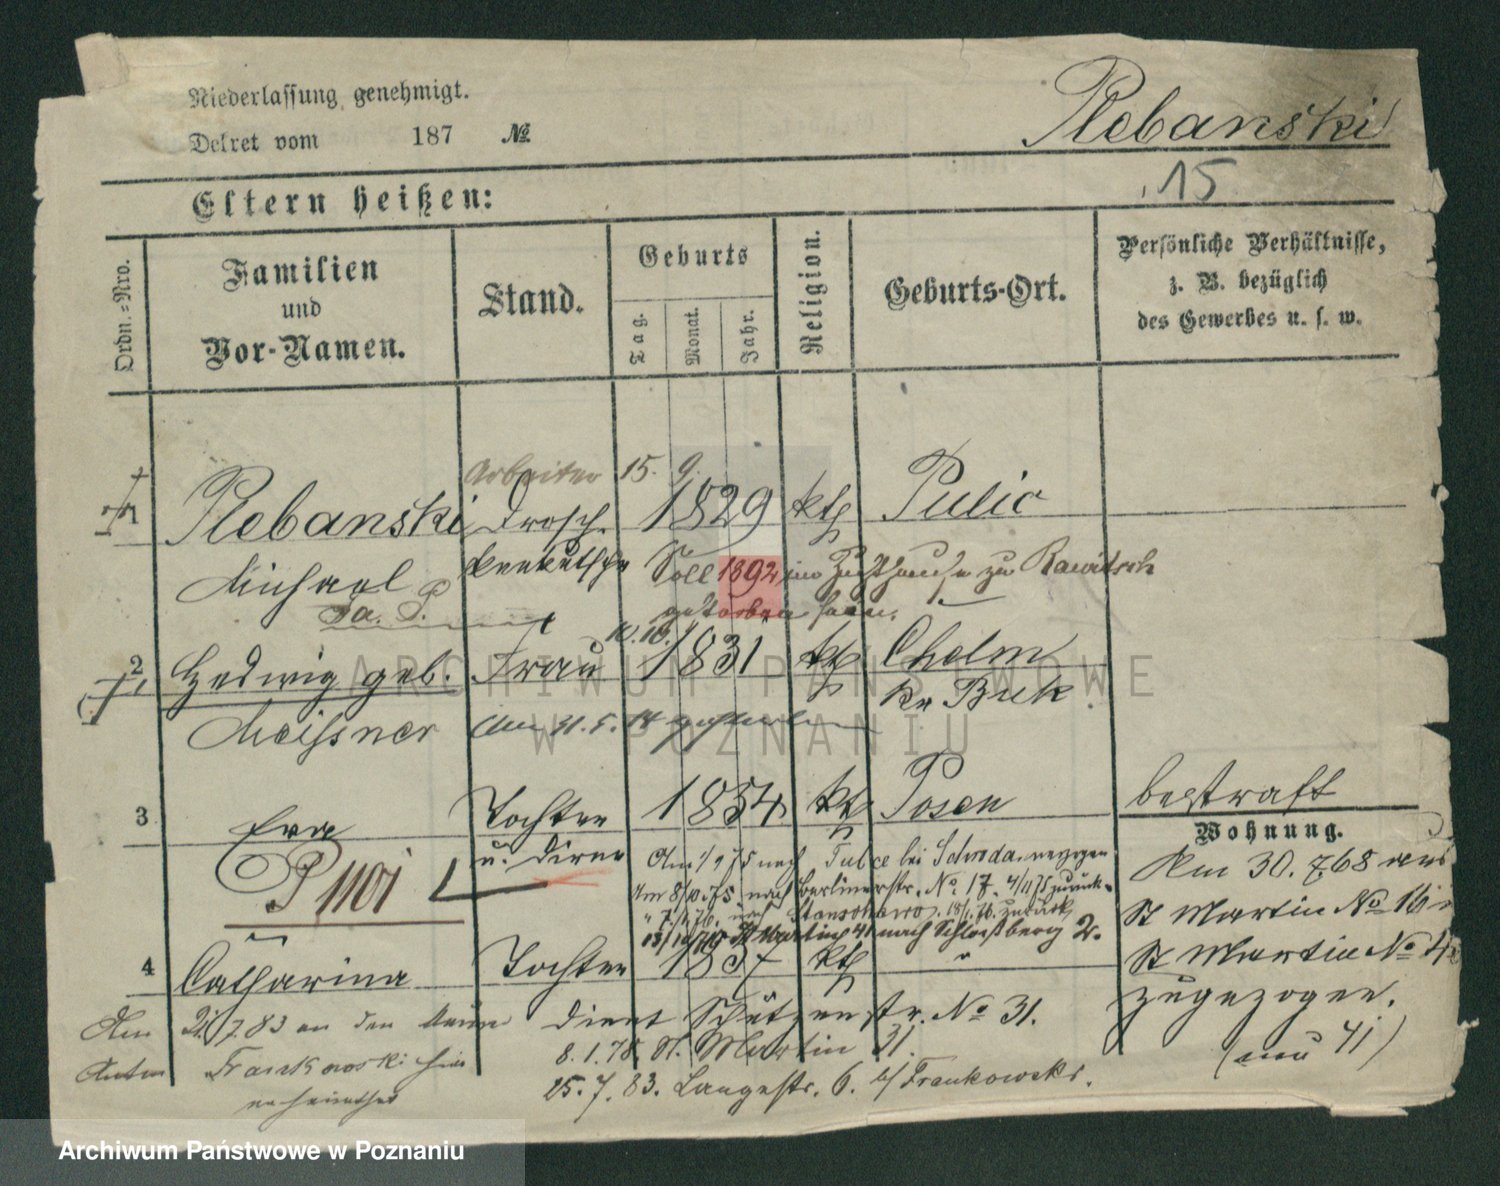 Niederlassung genehmigt.
Dekret vom 187 №
Plebanski
15
Eltern heißen:
Ordn.-Nro.
Familien
und
Vor-Namen.
Stand.
Geburts
Tag.
Monat.
Jahr.
Religion.
Geburts-Ort.
Persönliche Verhältnisse,
z. B. bezüglich
des Gewerbes u. s. w.
Arbeiter 15. 9.
1 Plebanski Drosch- 1829 kth Pulic
Michael kenkutscher Soll 1892 im Zuchthause zu Rawitsch
gestorben sein.
10. 10.
2 Hedwig geb. Frau 1831 kth Chelm
Kr Buk
Meißner Am 31. 5. gestorben
3 Eva Tochter 1854 kth Posen bestraft
u. Dirne
Wohnung.
P 1101
Am 1/9 75 nach Tulce bei Schroda verzogen
Am 8/10. 75. nach Berlinerstr. No. 17. 4/11 75 zurück
nach 18/1. 76. zurück
St Martin 41 nach Schloßberg 2.
Km 30. 7.68 von
St Martin No 16
St Martin No 4
zugezogen.
(neu 41)
4 Catharina Tochter 1857 kth "
Am 21. 7. 83 an den
Frankowski hier
verheirathet
dient Schützenstr. No 31.
8. 1. 78. St. Martin 31.
25. 7. 83. Langestr. 6. b/ Frankowski.
ARCHIWUM PAŃSTWOWE
W POZNANIU
Archiwum Państwowe w Poznaniu